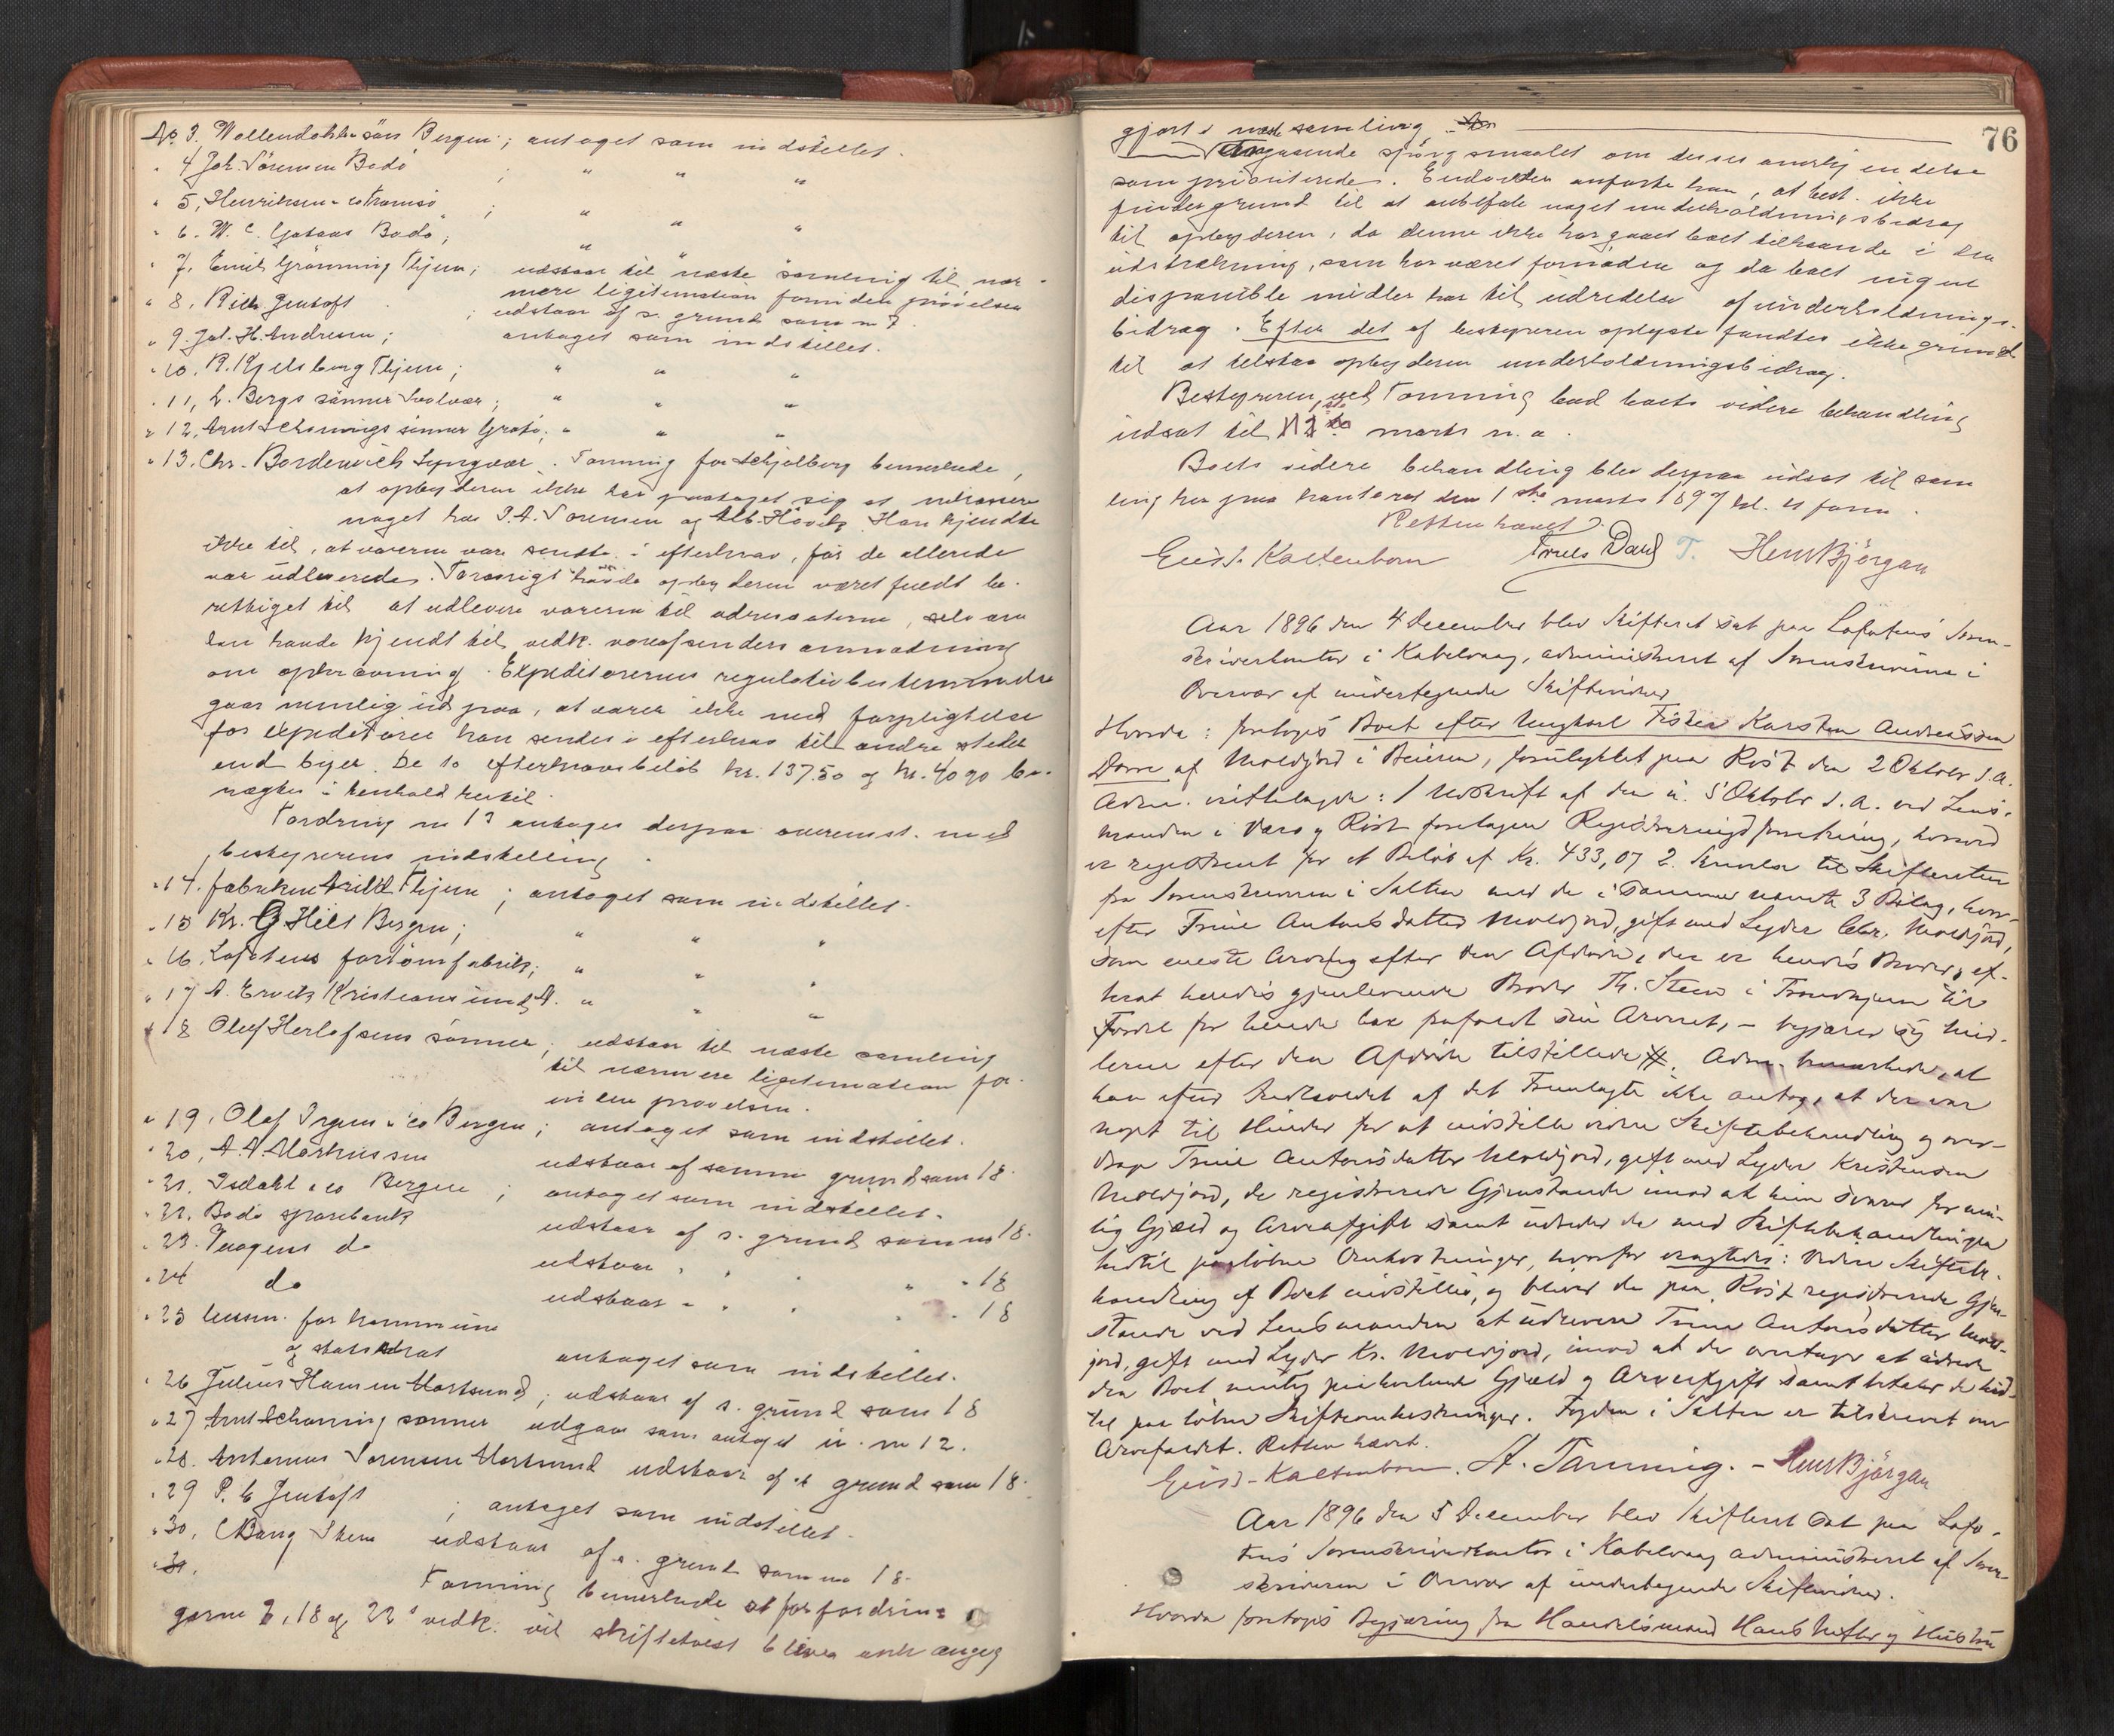 No 3. Mollendahl & søn Bergen; antaget som indstillet.
" 4 Joh. Sörensen Bodö ; " " "
" 5, Henriksen & co Tromsö ; " " "
" 6. W. C. Bodö ; " " "
" 7. Emil Grönning Thjem; udstaar til næste samling til nær-
mere legitimation forinden prövelsen
" 8, Rich. Jentoft ; udstaar af s. grund som n 7.
" 9. Joh. H. Andresen; antaget som indstillet.
" 10. R. Kjelsberg Thjem; " " "
" 11, L. Bergs sönner Svolvær; " " "
" 12, Arnt Schönings sönner ; " " "
" 13. Chr. Bordewich Lyngvær. Tanning for Schjelberg bemerkede,
at opbyderen ikke har paataget sig at indkassere
noget hos P. A. Sörensen og Alb. Hövik. Han kjendte
ikke til, at varerne var sendte i efterkrav, för de allerede
var udleverede. Forövrigt havde opbyderen været fuldt be-
rettiget til at udlevere varerne til adressaterne, selv om
han havde kjendt til vedk. vareafsenders anmodning
om opkrævning. Expeditörernes regulativbestemmelse
gaar nemlig ud paa, at varer ikke med forpligtelse
for expeditörer kan sendes i efterkrav til andre steder
end byer. De to efterkravsbelöb kr. 137.50 og kr. 40 90 be-
nægtes i henhold hertil.
Fordring n 13 antages derpaa overensst. med
bestyrerens indstilling.
" 14. fabriken Thjem; antaget som indstillet.
" 15 Kr. G Hill Bergen; " " "
" 16, Lofotens fabrik; " " "
" 17 A. Ervik Kristiansund N. " " "
" 18 Oluf Herlofsens sönner; udstaar til næste samling
til nærmere legitimation for-
inden prövelsen.
" 19, Olaf Irgens & co Bergen; antaget som indstillet.
" 20, A. A. Markussen udstaar af samme grund som 18.
" 21. Isdahl & co Bergen; antaget som indstillet.
" 22, Bodö sparebank udstaar af s. grund som no 18.
" 23. Vaagens do udstaar " " " " " 18
" 24 do udstaar " " " " 18
" 25 for kommune
og antaget som indstillet.
" 26 Julius Hansen Mortsund; udstaar af s. grund som 18
" 27 Arnt Schöning sönner udgaar som antaget u. no 12.
" 28. Antonius Sörensen Mortsund udstaar af s. grund som 18.
" 29 P. C Jentoft ; antaget som indstillet.
" 30, C Bang udstaar af s. grund som no 18.
" 31.
Tanning bemerkede at for fordrin-
gerne 7, 18 og 22's vedk. vil skiftetvist blive anlagt
76
gjort i næste samling.
Angaaende spörgsmaalet om deres anerkjendelse
som prioriterede. Endvidere anförte han, at best. ikke
finder grund til at anbefale noget underholdningsbidrag
til opbyderen, da denne ikke har gaaet boet tilhaande i den
udstrækning, som har været fornöden og da boet ingen
disponible midler har til udredelse af underholdnings-
bidrag. Efter det af bestyreren oplyste fandtes ikke grund
til at tilstaa opbyderen underholdningsbidrag.
Bestyreren ved Tanning bad boets videre behandling
udsat til 1ste marts n. a.
Boets videre behandling blev derpaa udsat til sam
ling her paa kontoret den 1ste marts 1897 kl. 11 form.
Retten hævet.
Gust. Kaltenborn Truls Dahl T. HensBjörgan
Aar 1896 den 4 December blev Skifteret sat paa Lofotens Soren-
skriverkontor i Kabelvaag, administreret af Sorenskriveren i
Overvær af undertegnede Skiftevidner.
Hvorda: foretoges Boet efter Ungkarl Fisker Karsten Andreassen
af Moldjord i Beieren, forulykket paa Röst den 2 Oktober d. A.
Adm. irettelagde: 1 Udskrift af den u. 5 Oktober d. A. ved Lens-
manden i Værö og Röst foretagen Registreringsforretning, hvorved
er registreret for et Belöb af Kr. 433,07 2. Skrivelse til Skifteretten
fra Sorenskriveren i Salten med de i samme nævnte 3 Bilag, hvor-
efter Trine Antonsdatter Moldjord, gift med Lyder Chr. Moldjord,
som eneste Arving efter den Afdöde, der er hendes Broder, ef-
terat hendes gjenlevende Broder Th. Steen i Trondhjem til
Fordel for hende har frafaldt sin Arveret, – begjærer sig Mid-
lerne efter den Afdöde tilstillede. Adm. bemærkede, at
han efter Indholdet af det Fremlagte ikke antog, at der var
noget til Hinder for at indstille videre Skiftebehandling og over-
drage Trine Antonsdatter Moldjord, gift med Lyder Kristensen
Moldjord, de registrerede Gjenstande imod at hun svarer for mu-
lig Gjæld og Arveafgift samt udreder de med Skiftebehandlingen
hidtil paaløbne Omkostninger, hvorfor eragtedes: Videre Skiftebe-
handling af Boet indstilles, og bliver de paa Röst registrerede Gjen-
stande ved Lensmanden at udlevere Trine Antonsdatter Mold-
jord, gift med Lyder Kr. Moldjord, imod at de overtager at udrede
den Boet muligt paahvilende Gjæld og Arveafgift samt betaler de hid-
til paa löbne Skifteomkostninger. Fogden i Salten er tilskrevet om
Arvefaldet. Retten hævet.
Gust. Kaltenborn. A. Tanning. – HensBjörgan
Aar 1896 den 5 December blev Skifteret sat paa Lofo-
tens Sorenskriverkontor i Kabelvaag administreret af Soren-
skriveren i Overvær af undertegnede Skiftevidner.
Hvorda foretoges Begjæring fra Handelsmand Hans og Hustru